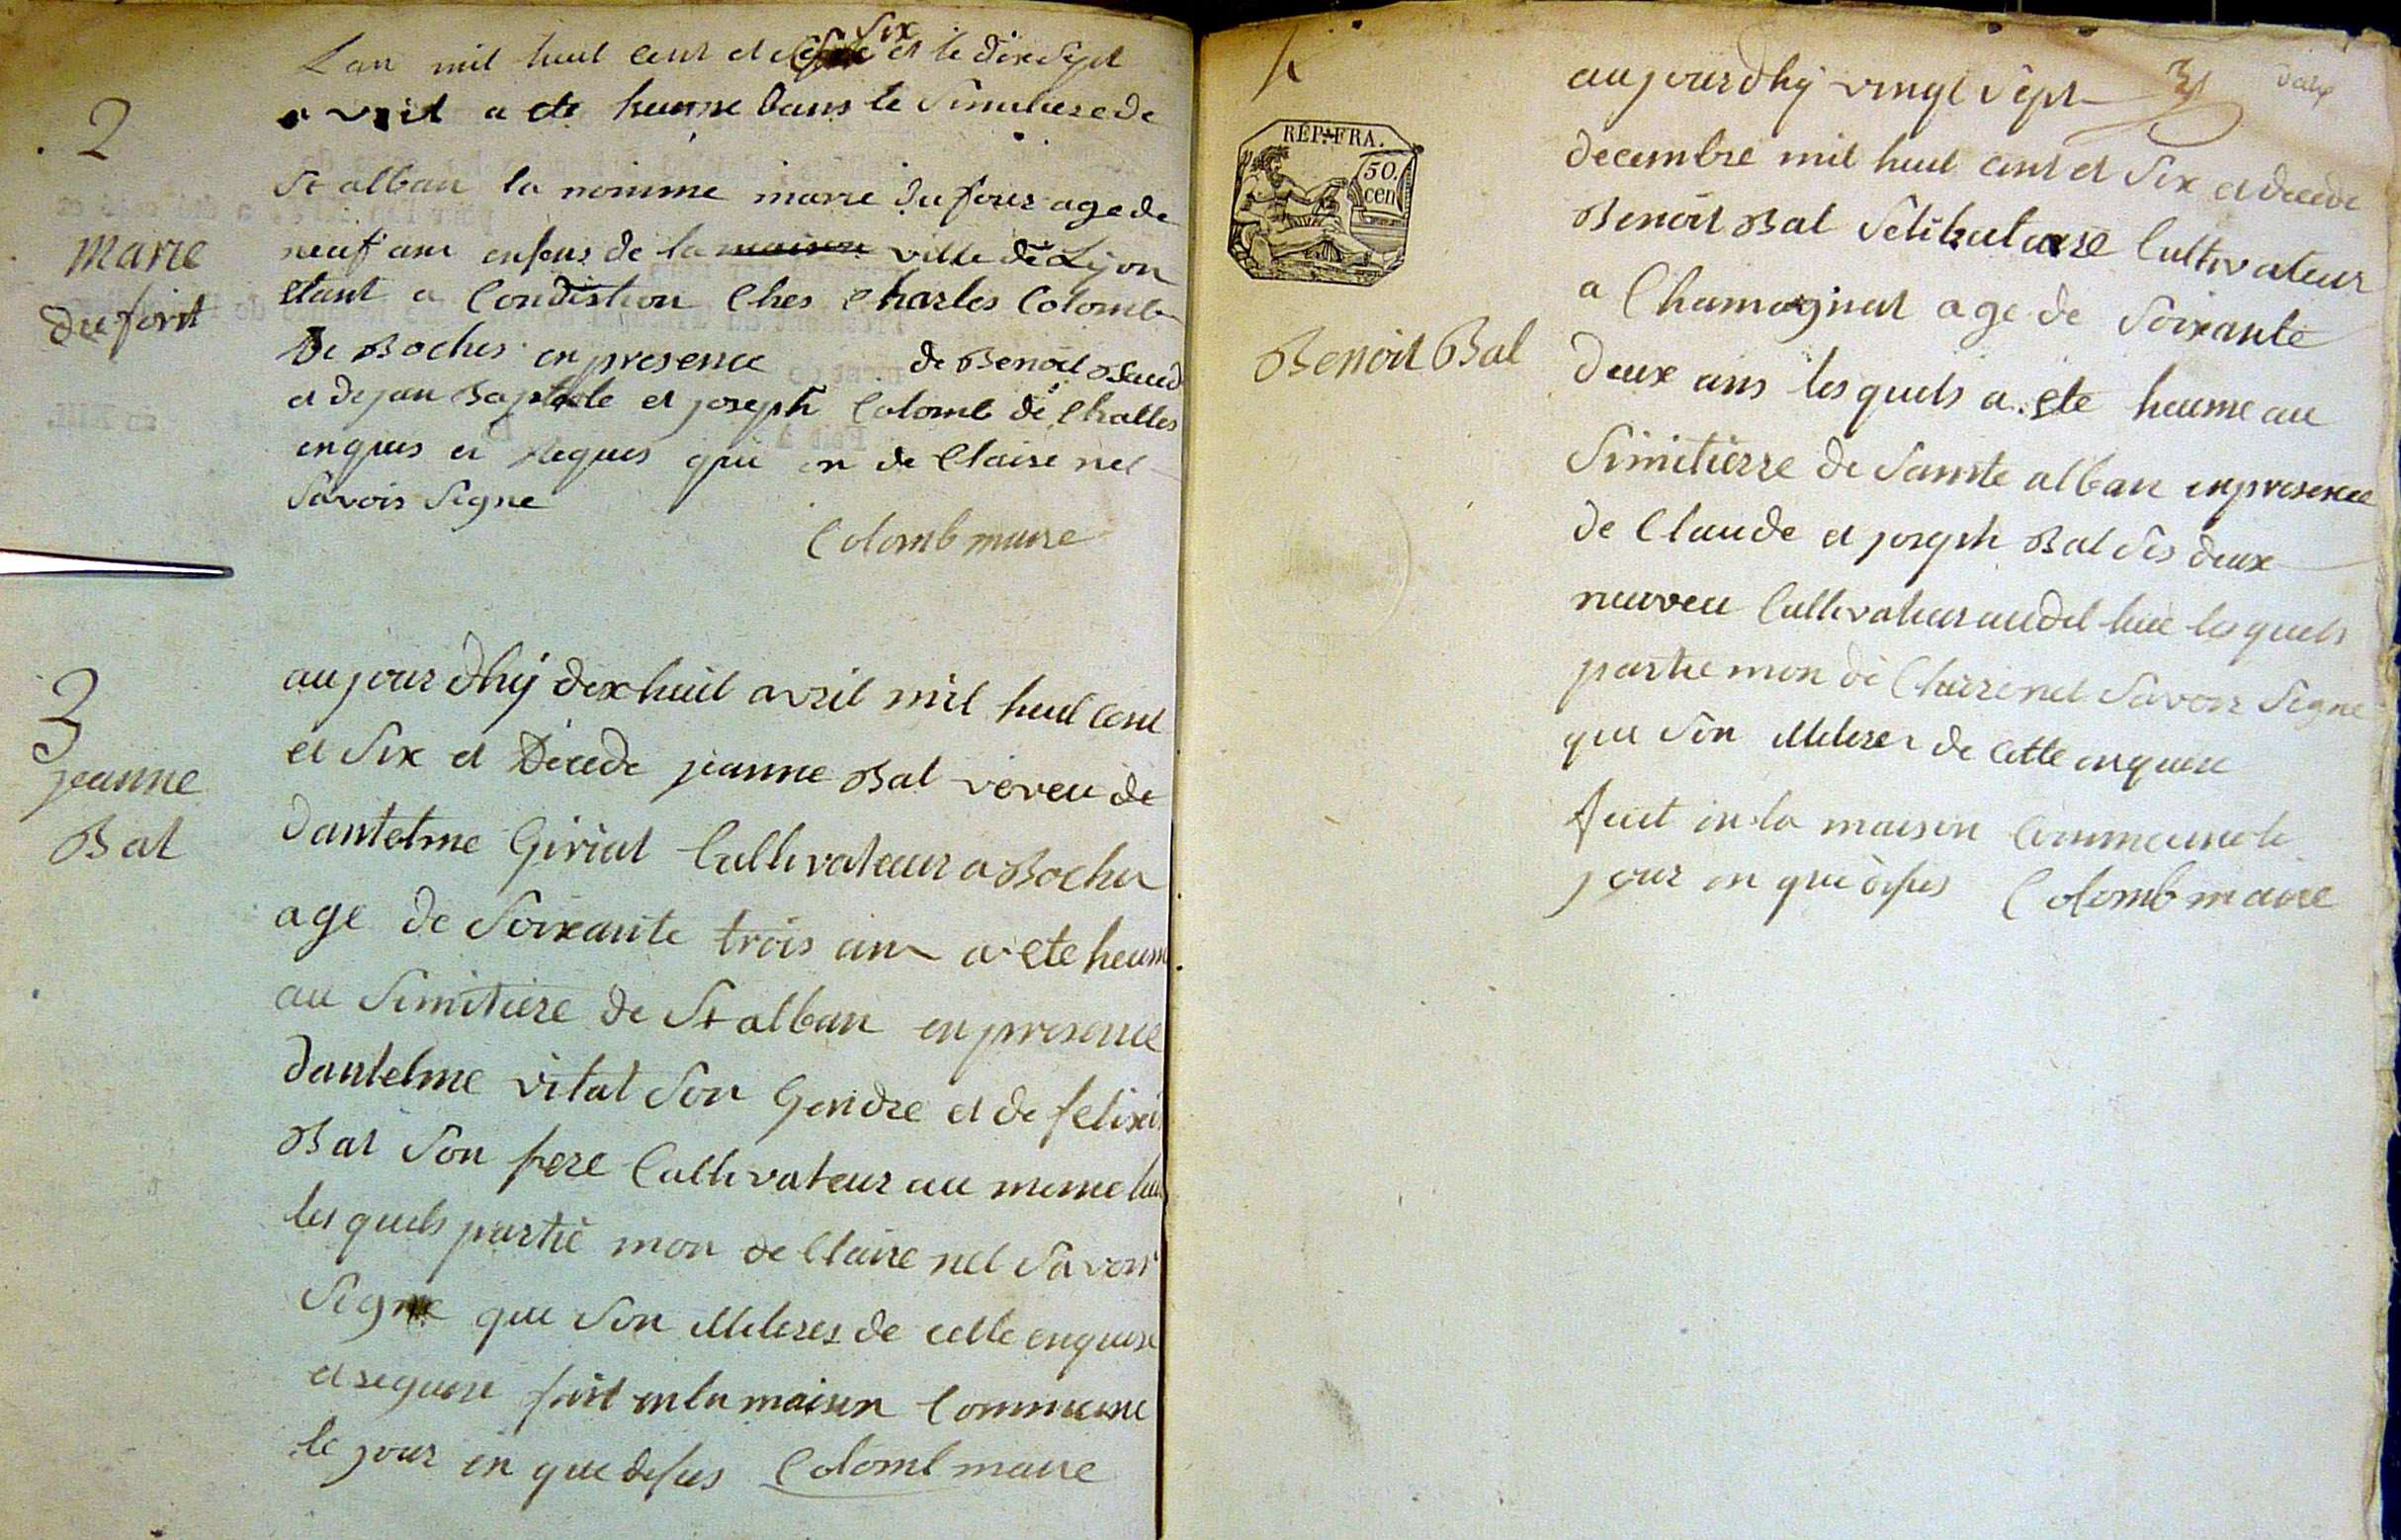 2
marie
du fort
Lan mil huit cent et six et le dix Sept
avril a ete heume dans le Simitiere de
St alban la nomme marie du four age de
neuf ans enfens de la maison ville de Lyon
etant a Condistion Ches Charles Colomb
De Boches en presence de Benoit
et de jan Baptiste et joseph Colomb de Challes
enquis et Requis qui on de Claire nel
Savoir Signe
Colomb maire
3
jeanne
Bal
aujour dhÿ dix huit avril mil huit cent
et Six et Décéde jeanne Bal veveu de
dantelme Giriat Cultivateur a Boches
age de Soixante trois ans a ete heum
au Simitiere de St alban en presence
dantelme vital Son Gendre et de felix
Bal Son frere Cultivateur au meme lieu
les quels partie mon de Claire nel Savoir
Signe que Son Illiteres de cette enquise
et requise fait en la maison Commune
le jour en que desus Colomb maire
REP. FRA.
50.
cen
Benoit Bal
aujourdhÿ vingt Sept
decembre mil huit cent et Six et decede
Benoit Bal Selibutaire Cultivateur
a Chamagnat age de Soixante
deux ans les quels a ete heume au
Simitierre de Sainte alban en presence
de Claude et joseph Bal Ses deux
neuveu Cultivateur audit lieu les quels
partie mon de Claire nel Savoir Signe
que Son Illiteres de Cette enquise
fait en la maison Commune le
jour en que desus Colomb maire